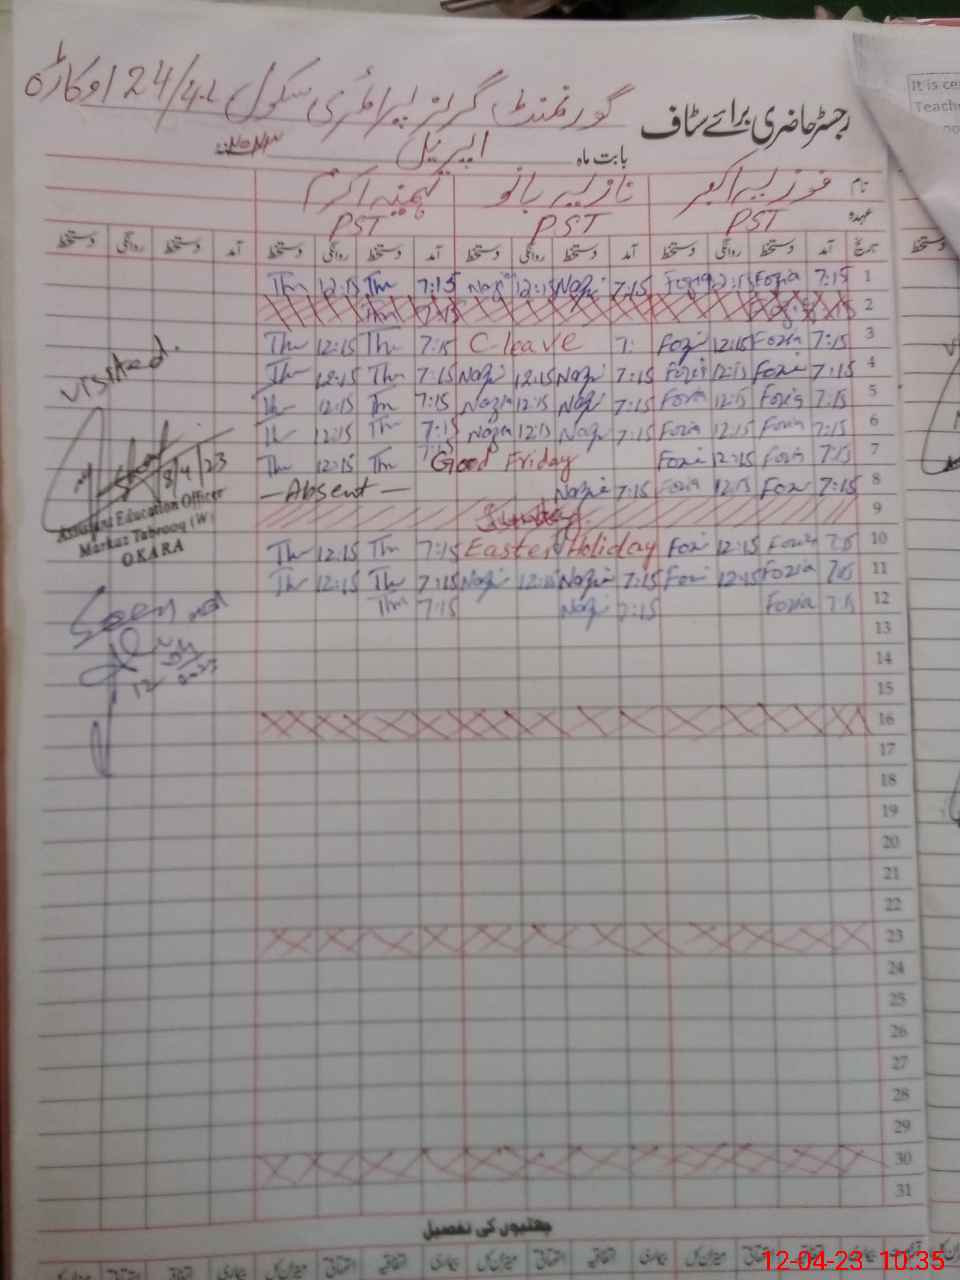 گورنمنٹ گرلز پرائمری سکول 24/4.L اوکاڑہ
رجسٹر حاضری برائے سٹاف
بابت ماہ اپریل
نام فوزیہ اکبر نازیہ بانو تہمینہ اکرم
عہدہ PST PST PST
تاریخ آمد دستخط روانگی دستخط آمد دستخط روانگی دستخط آمد دستخط روانگی دستخط آمد دستخط روانگی دستخط
1 7:15 Fozia 12:15 Fozia 7:15 Nazi 12:15 Nazi 7:15 Thr 12:15 Thr
2
3 7:15 Fozia 12:15 Fozi 7: C leave 7:15 Thr 12:15 Thr
4 7:15 Fozi 12:15 Fozi 7:15 Nazi 12:15 Nazi 7:15 Thr 12:15 Thr
5 7:15 Fozia 12:15 Fozia 7:15 Nazi 12:15 Nazia 7:15 Thr 12:15 Thr
6 7:15 Fozia 12:15 Fozia 7:15 Nazi 12:15 Nazia 7:15 Thr 12:15 Thr
7 7:15 Fozia 12:15 Fozi Good Friday Thr 12:15 Thr
8 7:15 Fozi 12:15 Fozia 7:15 Nazia — Absent —
9 Sunday
10 7:15 Fozia 12:15 Fozi Easter Holiday 7:15 Thr 12:15 Thr
11 7:15 Fozia 12:15 Fozi 7:15 Nazia 12:15 Nazi 7:15 Thr 12:15 Thr
12 7:15 Fozia 7:15 Nazi 7:15 Thr
13
14
15
16
17
18
19
20
21
22
23
24
25
26
27
28
29
30
31
visited.
8/4/23
Assistant Education Officer
Markaz Tabrooq (W)
OKARA
Seen
12
چھٹیوں کی تفصیل
It is ce
Teache
12-04-23 10:35